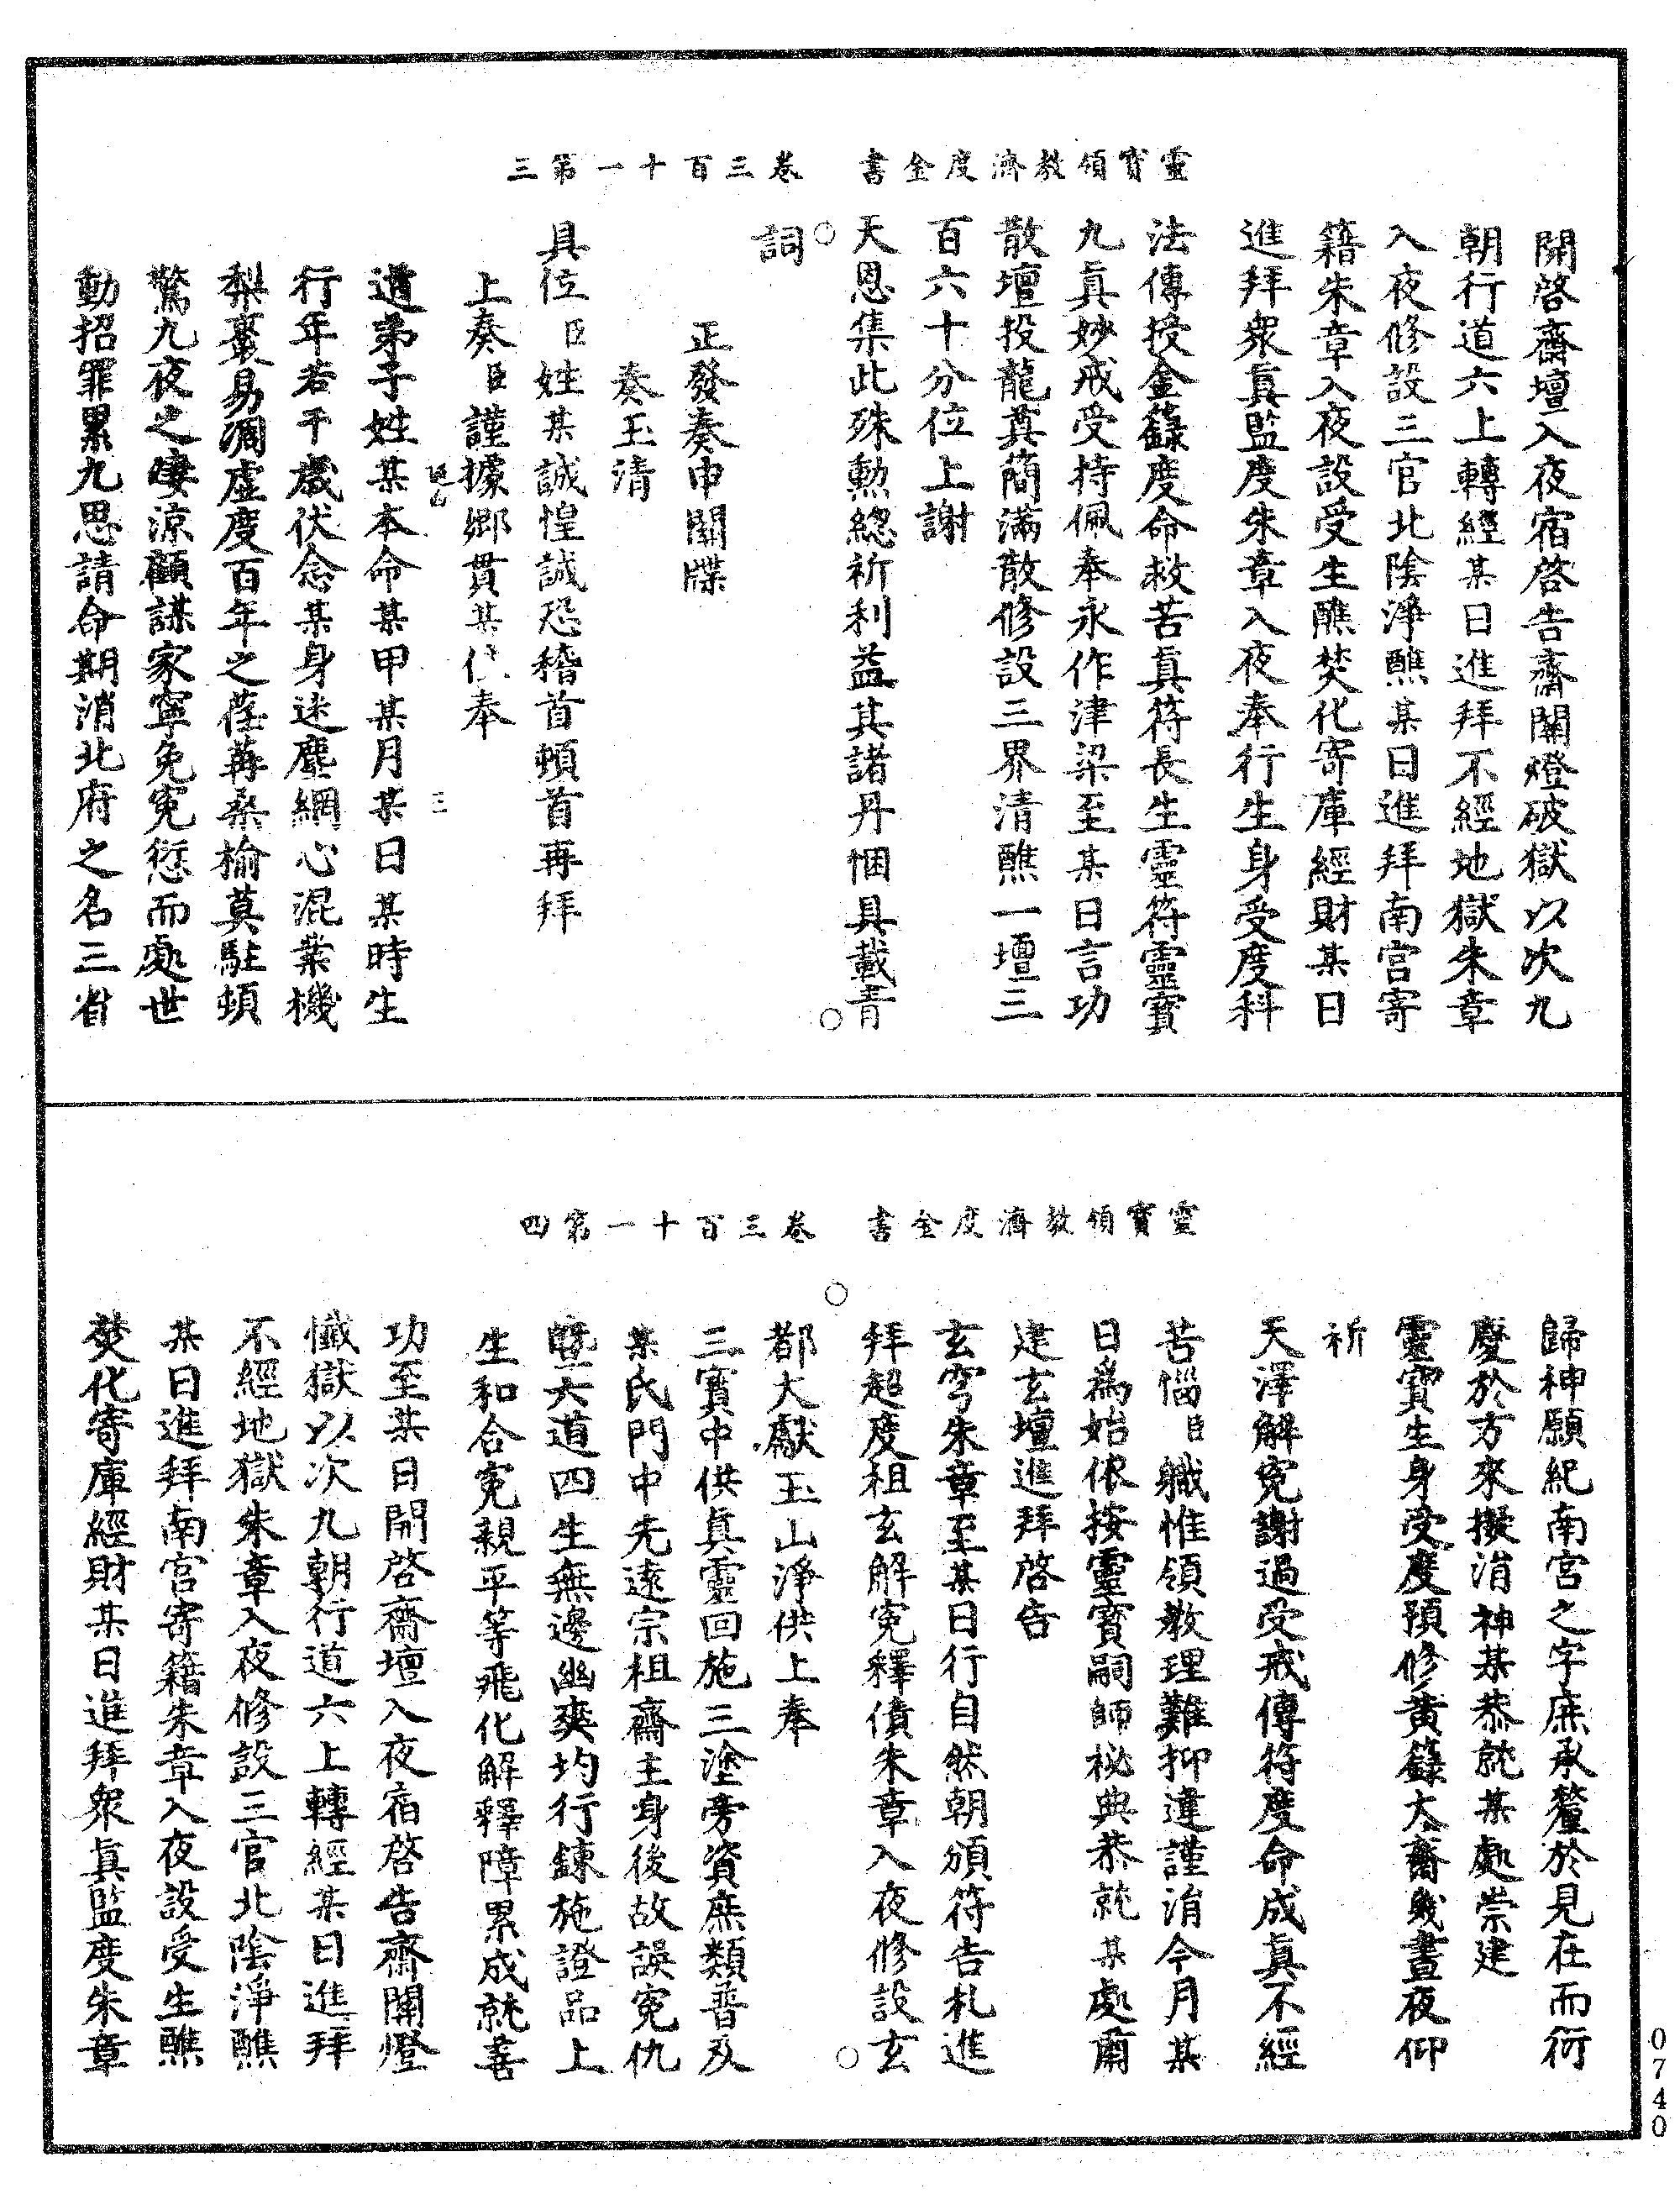 靈寶領教濟度金書　卷三百十一第三
開啓齋壇入夜宿啓告齋關燈破獄以次九
朝行道六上轉經某日進拜不經地獄朱章
入夜修設三官北陰淨醮某日進拜南宮寄
籍朱章入夜設受生醮焚化寄庫經財某日
進拜衆眞監度朱章入夜奉行生身受度科
法傳授金籙度命救苦眞符長生靈符靈寶
九眞妙戒受持佩奉永作津梁至某日言功
散壇投龍奠簡滿散修設三界清醮一壇三
百六十分位上謝
天恩集此殊勳緫祈利益其諸丹悃具載青
詞
正發奏申關牒
奏玉清
具位臣姓某誠惶誠恐稽首頓首再拜
上奏臣謹據鄉貫某奉
道弟子姓某本命某甲某月某日某時生
三
行年若干歲伏念某身迷塵網心混業機
梨棗易凋虛度百年之荏苒桑榆莫駐頓
驚九夜之凄涼顧謀家寧免冤愆而處世
動招罪累九思請命期消北府之名三省
靈寶領教濟度金書　卷三百十一第四
歸神願紀南宮之字庶承釐於見在而衍
慶於方來擬涓神某恭就某處崇建
靈寶生身受度預修黃籙大齋幾晝夜仰
祈
天澤解寃謝過受戒傳符度命成眞不經
苦惱臣職惟領教理難抑違謹涓今月某
日爲始依按靈寶嗣師祕典恭就某處肅
建玄壇進拜啓告
玄穹朱章至某日行自然朝頒符告札進
拜超度祖玄解寃釋債朱章入夜修設玄
都大獻玉山淨供上奉
三寶中供眞靈回施三塗旁資庶類普及
某氏門中先遠宗祖齋主身後故誤寃仇
曁六道四生無邊幽爽均行鍊施證品上
生和合寃親平等飛化解釋障累成就善
功至某日開啓齋壇入夜宿啓告齋關燈
懺獄以次九朝行道六上轉經某日進拜
不經地獄朱章入夜修設三官北陰淨醮
某日進拜南宮寄籍朱章入夜設受生醮
焚化寄庫經財某日進拜衆眞監度朱章
0740